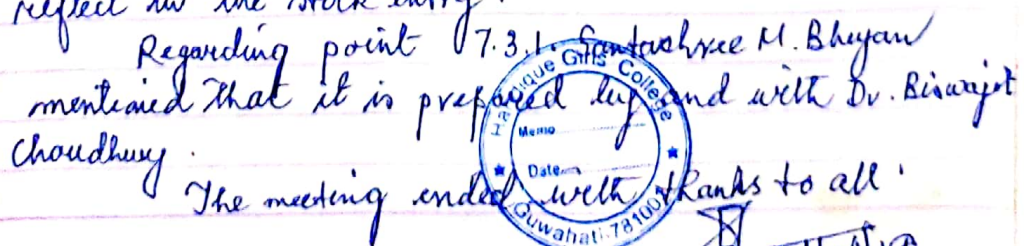 reflect in the stock entry.
Regarding point 7.3.1. Santashree M. Bhuyan
mentioned that it is prepared by and with Dr. Biswajit
Choudhury.
The meeting ended with thanks to all.
Handique Girls' College
Memo
Date
Guwahati-781001